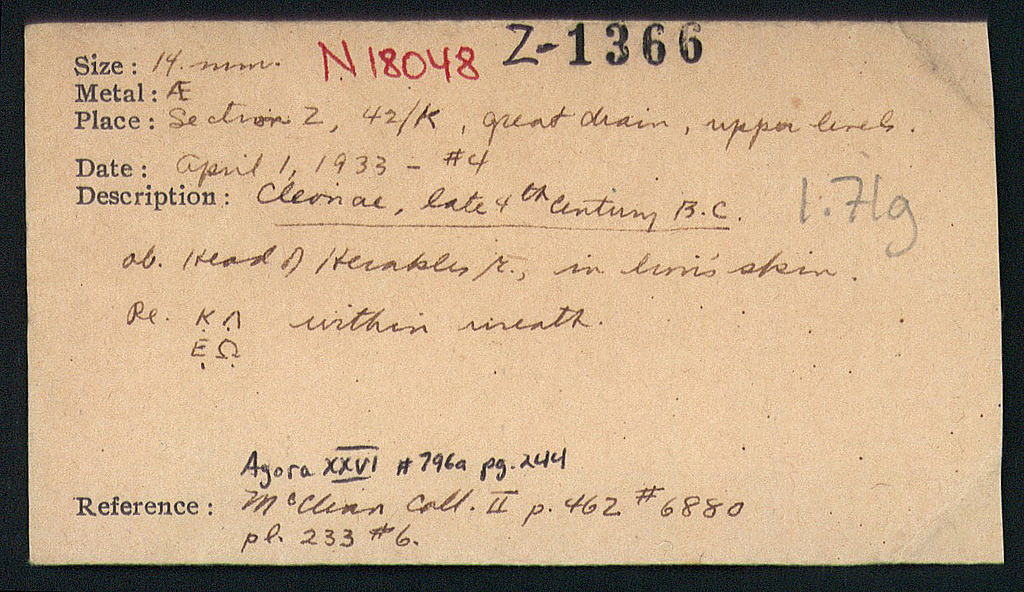 N 18048 Z-1366
Size: 14. mm.
Metal: Æ
Place: Section Z, 42/K, great drain, upper levels.
Date: April 1, 1933 - #4
Description: Cleonae, late 4th Century B.C.
1.71g
ob. Head of Herakles r., in lion's skin.
Re. Κ Λ within wreath.
Ε Ω
Agora XXVI #796a pg. 244
Reference: McClean Coll. II p. 462 #6880
pl. 233 #6.